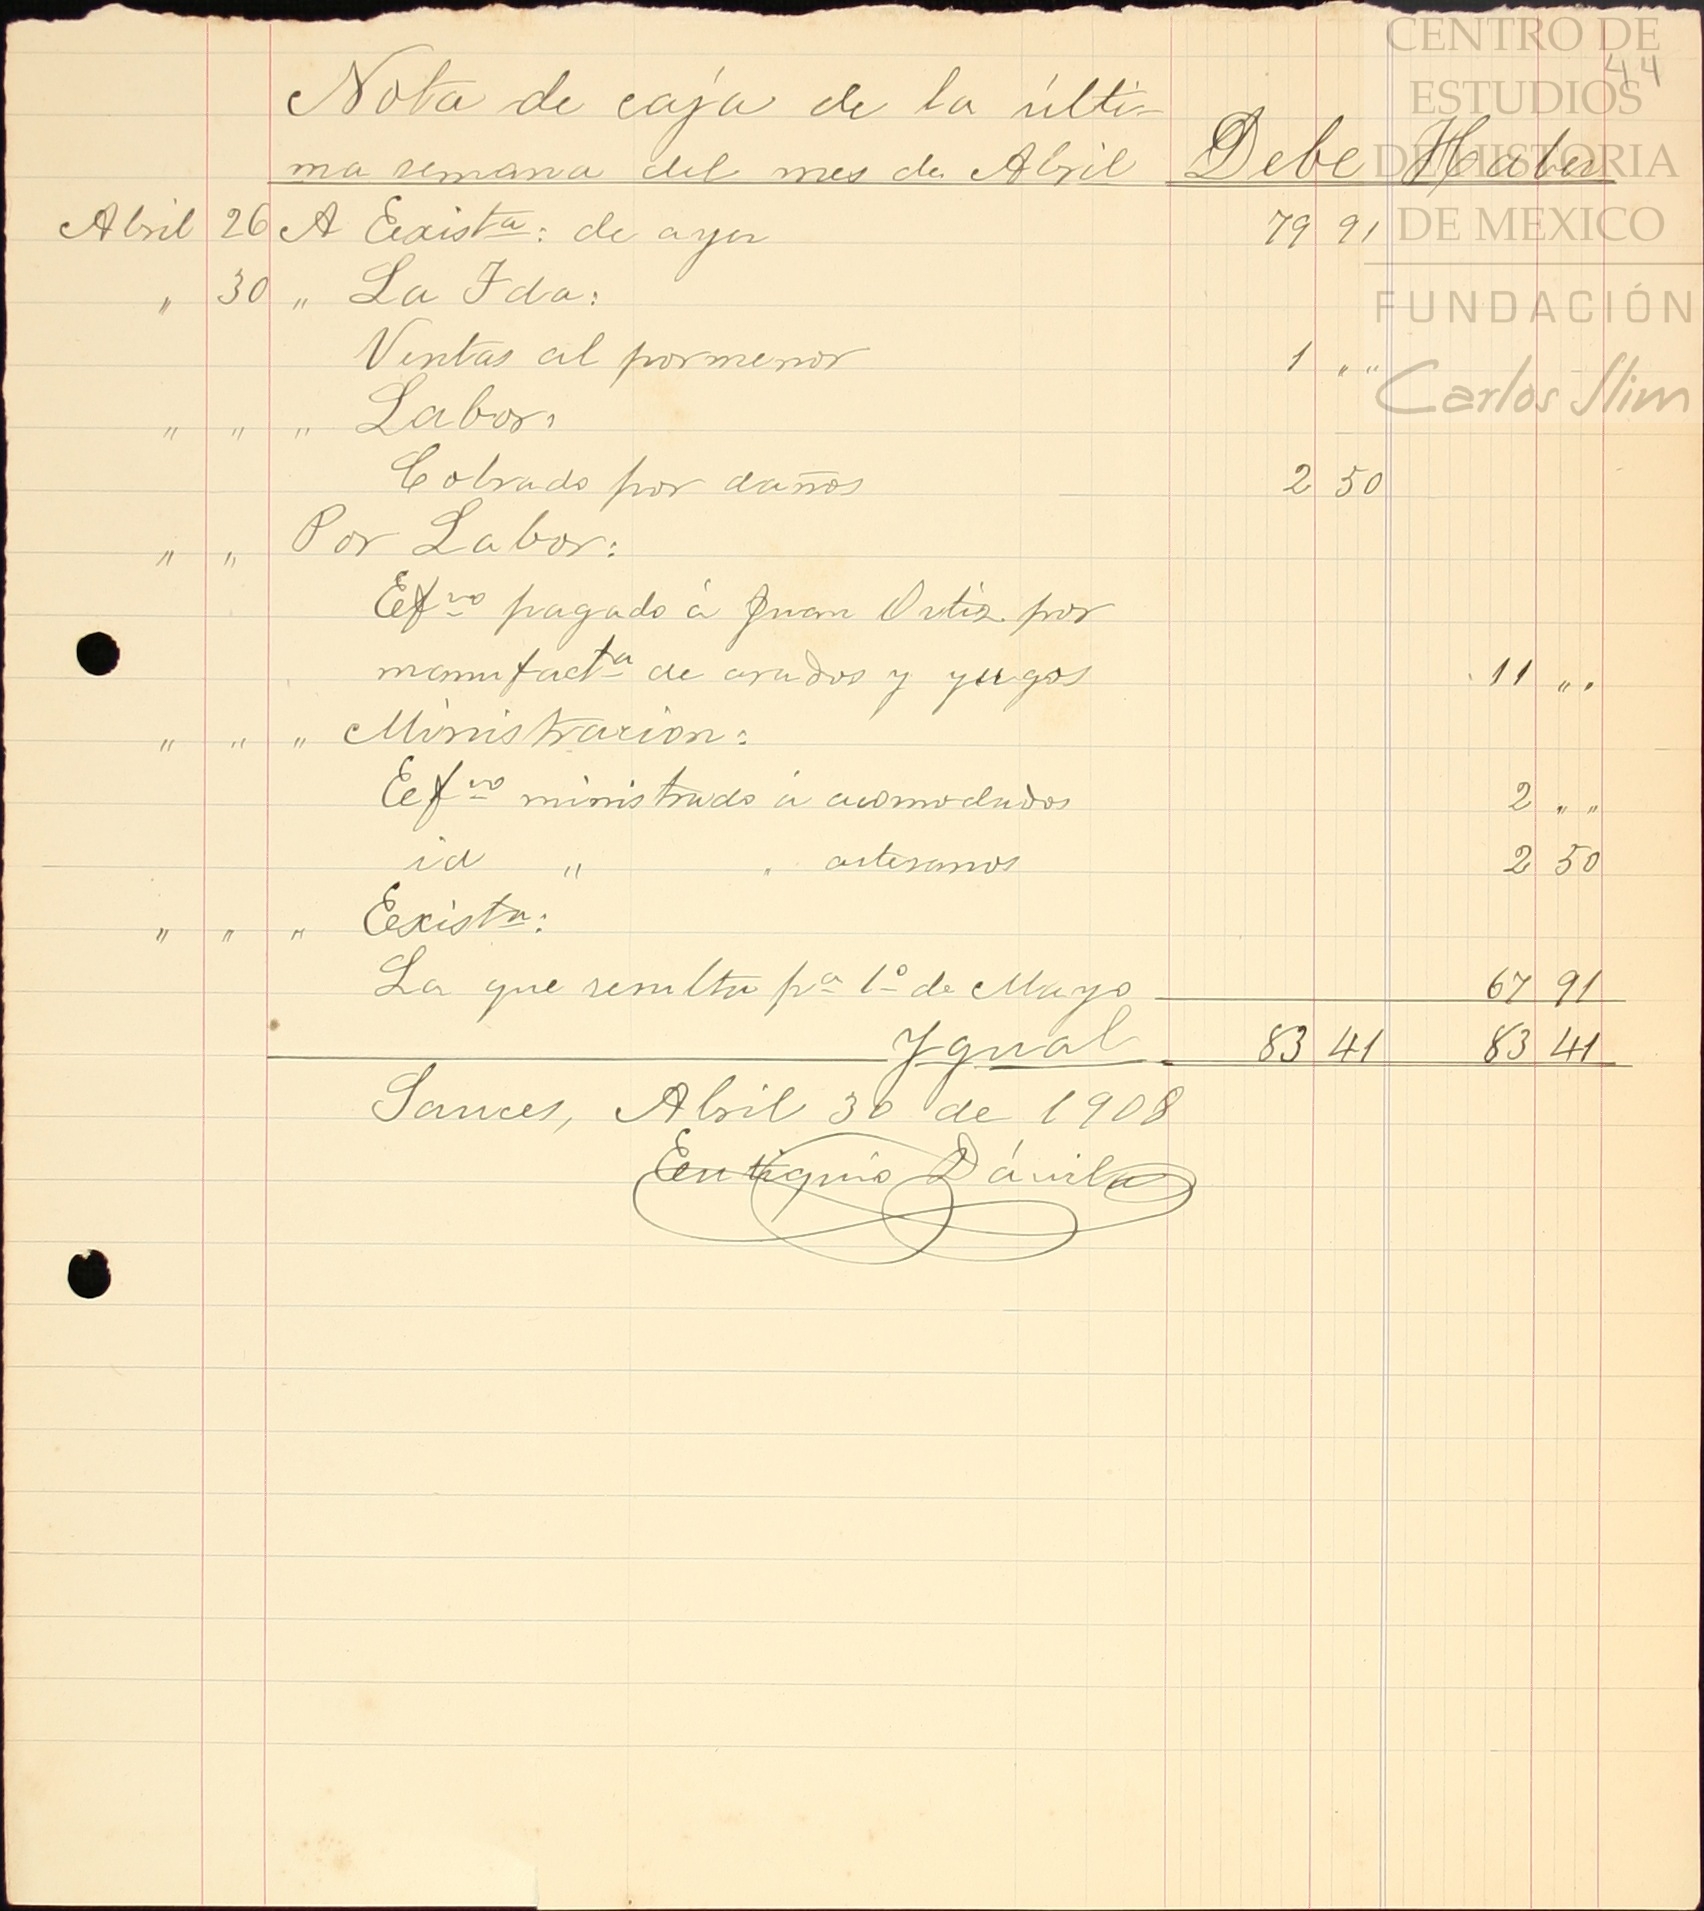 CENTRO DE
ESTUDIOS
DE HISTORIA
DE MEXICO
FUNDACIÓN
Carlos Slim
44
Nota de caja de la últi-
ma semana del mes de Abril Debe Haber
Abril 26 A Exista: de ayer 79 91
" 30 " La Ida:
Ventas al pormenor 1 " "
" " " Labor:
Cobrado por daños 2 50
" " Por Labor:
Efvo pagado á Juan Ortiz por
manufacta de arados y yugos 11 " "
" " " Ministracion:
Efvo ministrado á acomodados 2 " "
id " " artesanos 2 50
" " " Exista:
La que resulta pa 1o de Mayo 67 91
Ygual 83 41 83 41
Sauces, Abril 30 de 1908
Eutiquio Dávila